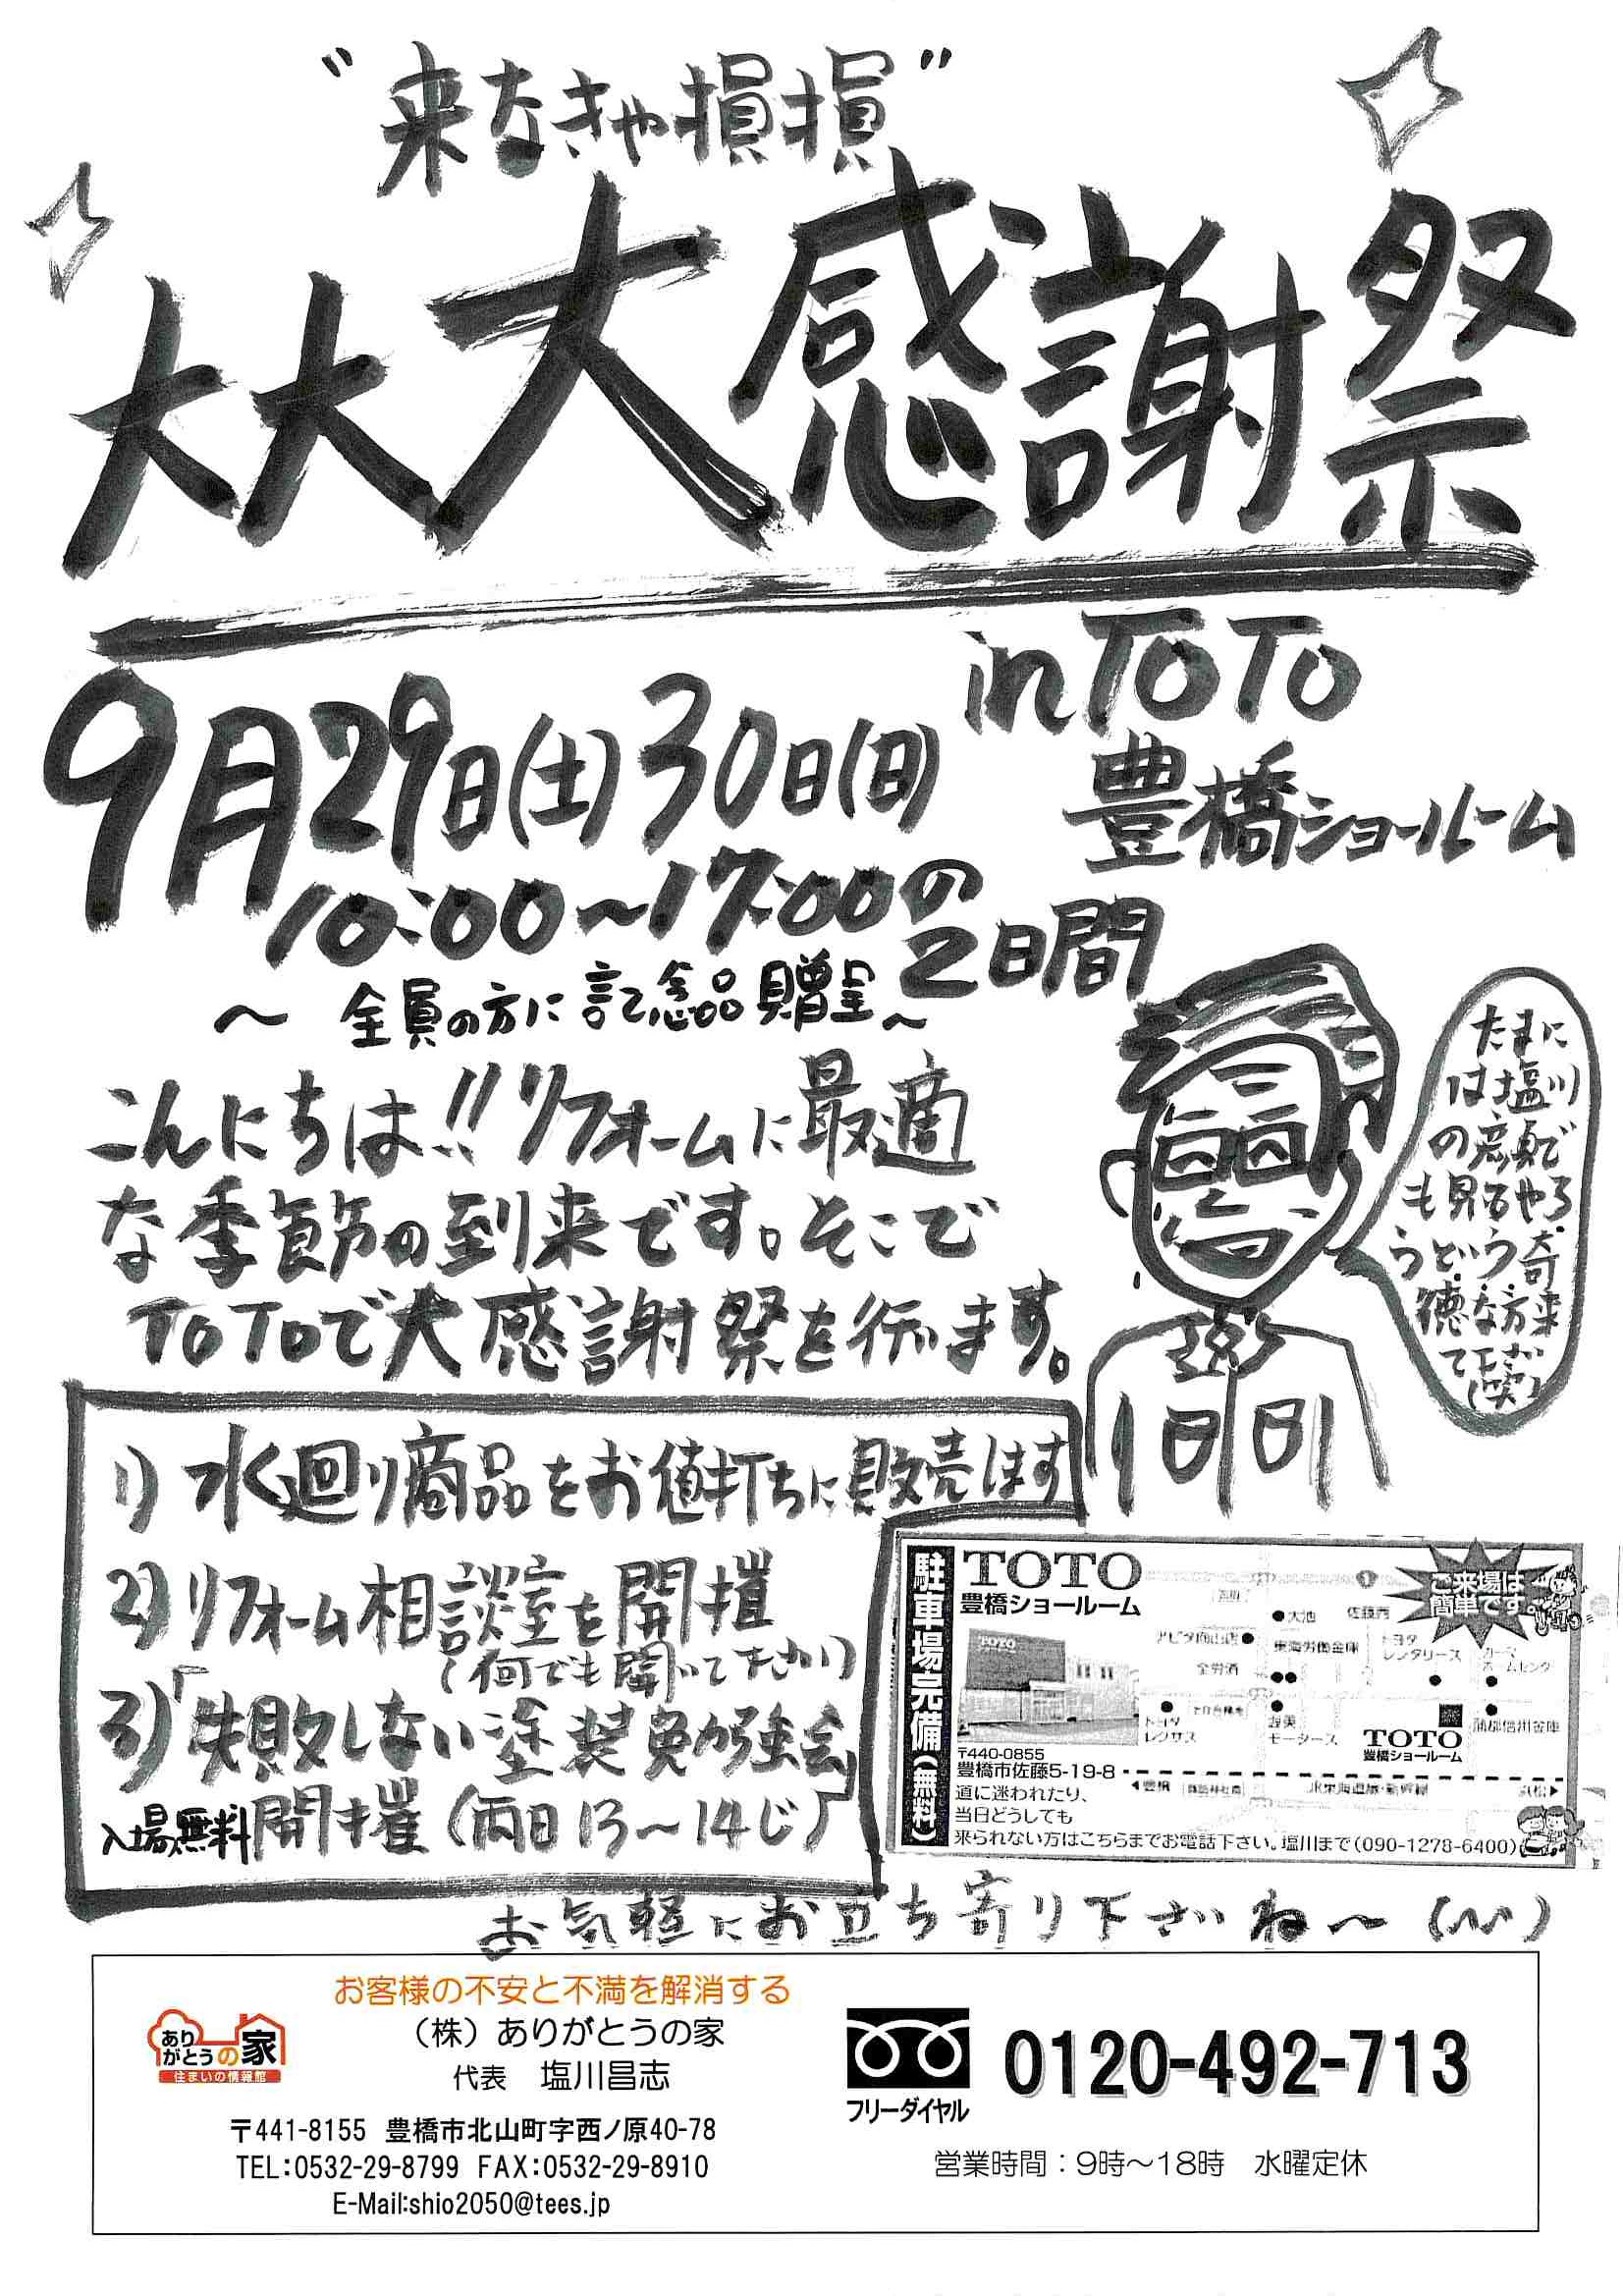 "来なきゃ損損"
大大大感謝祭
9月29日(土)30日(日)
in TOTO
豊橋ショールーム
10:00~17:00の
2日間
~全員の方に記念品贈呈~
こんにちは!!リフォームに最適
な季節の到来です。そこで
TOTOで大感謝祭を行います。
たまに
は塩川
の彦貞で
も見るやろ
うという奇
徳な方来
て下さい
(笑)
1)水廻り商品をお値打ちに販売します
2)リフォーム相談室を開催
(何でも聞いて下さい)
3)「失敗しない塗装勉強会」
入場無料 開催(両日13~14じ)
駐車場完備(無料)
TOTO
豊橋ショールーム
ご来場は
簡単です。
TOTO
大池
アピタ向山店
東海労働金庫
トヨタ
レンタリース
カーマ
ホームセンター
全労済
トヨタ
レクサス
渥美
モータース
TOTO
豊橋ショールーム
蒲郡信用金庫
〒440-0855
豊橋市佐藤5-19-8
◀豊橋
JR東海道線・新幹線
浜松▶
道に迷われたり、
当日どうしても
来られない方はこちらまでお電話下さい。塩川まで(090-1278-6400)
お気軽にお立ち寄り下さいね~(^v^)
お客様の不安と不満を解消する
(株)ありがとうの家
代表 塩川昌志
ありがとうの家
住まいの情報館
〒441-8155 豊橋市北山町字西ノ原40-78
TEL:0532-29-8799 FAX:0532-29-8910
E-Mail:shio2050@tees.jp
フリーダイヤル
0120-492-713
営業時間:9時~18時 水曜定休